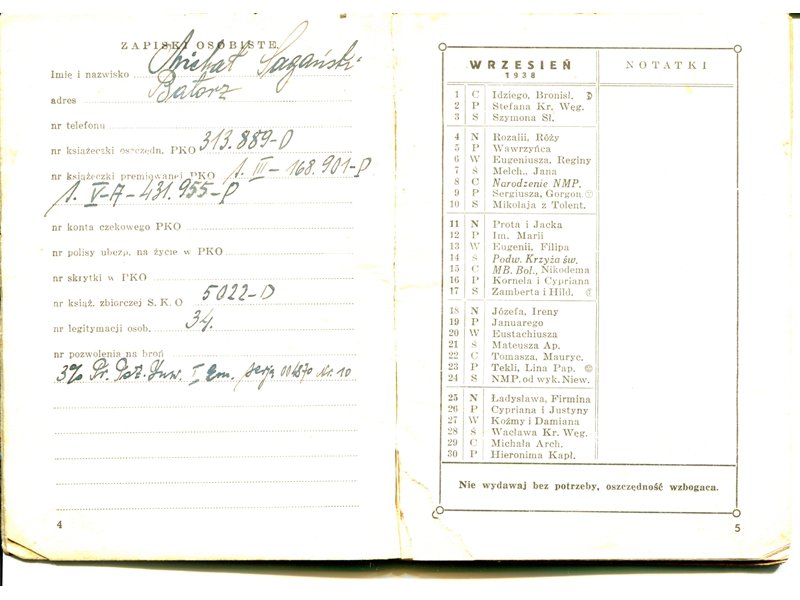 ZAPISKI OSOBISTE
Imię i nazwisko Michał Sagański
adres Batorz
nr telefonu
nr książeczki oszczędn. PKO 313.889-O
nr książeczki premiowanej PKO 1. III - 168.901-P
1. V-A-431.955-P
nr konta czekowego PKO
nr polisy ubezp. na życie w PKO
nr skrytki w PKO
nr książ. zbiorczej S. K. O 5022-D
nr legitymacji osob. 34.
nr pozwolenia na broń
3% Pr. Poż. Inw. I Em. serja 004870 Nr. 10
4
WRZESIEŃ
1938
NOTATKI
1 C Idziego, Bronisł.
2 P Stefana Kr. Węg.
3 S Szymona Sł.
4 N Rozalii, Róży
5 P Wawrzyńca
6 W Eugeniusza, Reginy
7 S Melch., Jana
8 C Narodzenie NMP.
9 P Sergiusza, Gorgon.
10 S Mikołaja z Tolent.
11 N Prota i Jacka
12 P Im. Marii
13 W Eugenii, Filipa
14 S Podw. Krzyża św.
15 C MB. Bol., Nikodema
16 P Kornela i Cypriana
17 S Zamberta i Hild.
18 N Józefa, Ireny
19 P Januarego
20 W Eustachiusza
21 S Mateusza Ap.
22 C Tomasza, Mauryc.
23 P Tekli, Lina Pap.
24 S NMP. od wyk. Niew.
25 N Ładysława, Firmina
26 P Cypriana i Justyny
27 W Koźmy i Damiana
28 S Wacława Kr. Węg.
29 C Michała Arch.
30 P Hieronima Kapł.
Nie wydawaj bez potrzeby, oszczędność wzbogaca.
5